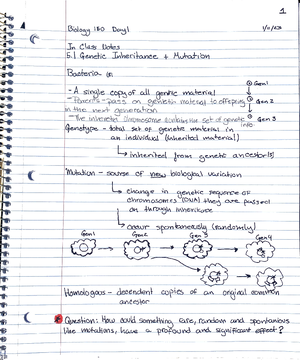 1
Biology 180 Day 1
In Class Notes
5.1 Genetic Inheritance + Mutation
Bacteria
- A single copy of all genetic material
Gen 1
- Parents - pass on genetic material to offspring
in the next generation
Gen 2
- The inherited chromosome contains the set of genetic info.
Gen 3
Genotype - total set of genetic material in
an individual (inherited material)
inherited from genetic ancestor(s)
Mutation - source of new biological variation
change in genetic sequence of
chromosomes (DNA) they are passed
on through inheritance
occur spontaneously (randomly)
Gen 1 Gen 2 Gen 3 Gen 4
Homologous - dependent copies of an original common
ancestor
Question: How could something, rare, random and spontaneous
like mutations, have a profound and significant effect?